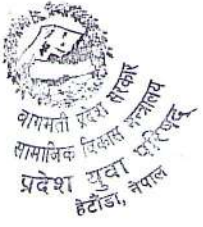 बागमती प्रदेश सरकार
सामाजिक विकास मन्त्रालय
प्रदेश युवा परिषद्
हेटौंडा, नेपाल